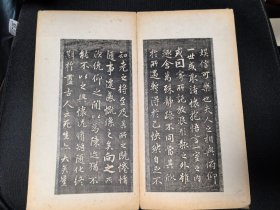 娛信可樂也夫人之相與俯仰
一世或取諸懷抱悟言一室之內
或因寄所託放浪形骸之外雖
趣舍萬殊靜躁不同當其欣
於所遇暫得於己怏然自足不
知老之將至及其所之既惓情
隨事遷感慨係之矣向之所欣
俛仰之間以為陳迹猶不
能不以之興懷況脩短隨化終
期於盡古人云死生亦大矣豈